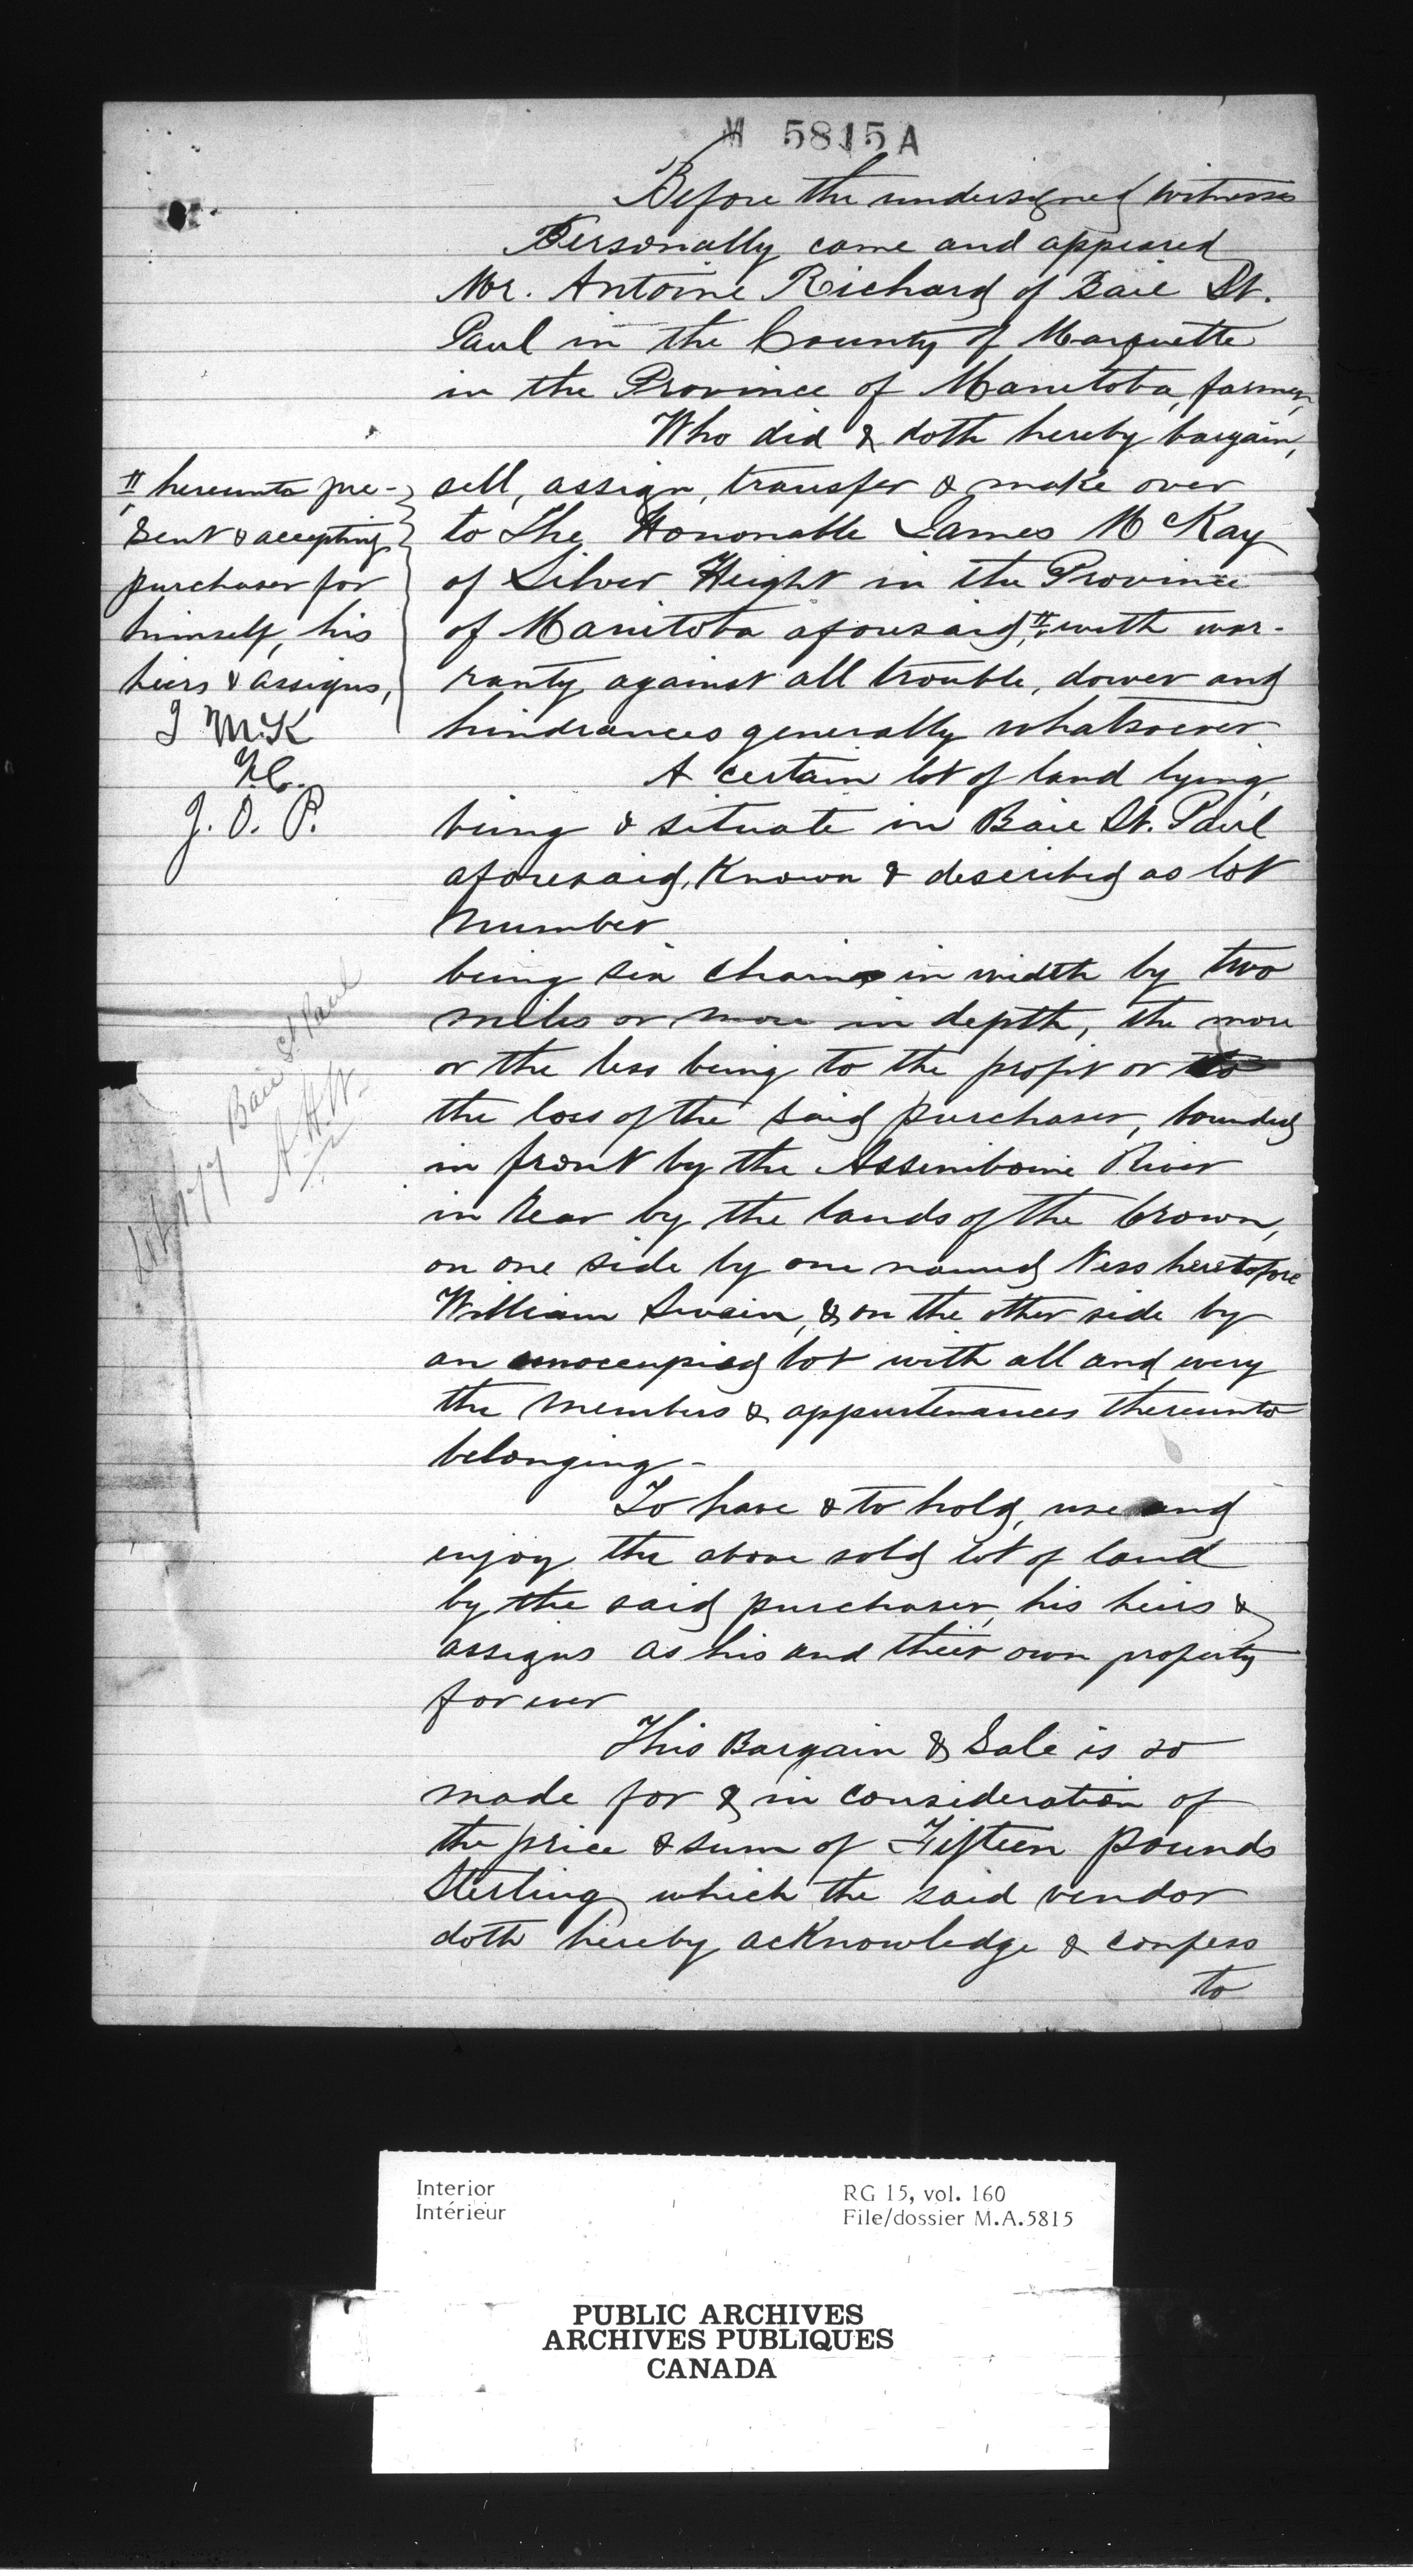 M 5815 A
Before the undersigned witnesses
Personally came and appeared
Mr. Antoine Richard of Baie St.
Paul in the County of Marquette
in the Province of Manitoba, farmer,
Who did & doth hereby bargain,
sell, assign, transfer & make over
to The Honorable James McKay
of Silver Height in the Province
of Manitoba aforesaid, # with war-
ranty against all trouble, dower and
hindrances generally whatsoever
# hereunto pre-
sent & accepting
purchaser for
himself, his
heirs & assigns,
J McK
J. O. P.
A certain lot of land lying,
being & situate in Baie St. Paul
aforesaid, Known & described as lot
Number
being six chains in width by two
miles or more in depth, the more
or the less being to the profit or to
the loss of the said purchaser, bounded
in front by the Assiniboine River
in rear by the lands of the Crown,
on one side by one named Ness heretofore
William Swain, & on the other side by
an unoccupied lot with all and every
the members & appurtenances thereunto
belonging -
Lot 177 Baie St Paul
A.H.W.
To have & to hold, use and
enjoy the above sold lot of land
by the said purchaser, his heirs &
assigns as his and their own property
for ever
This Bargain & Sale is so
made for & in consideration of
the price & sum of Fifteen pounds
Sterling which the said vendor
doth hereby acknowledge & confess
to
Interior
Intérieur
RG 15, vol. 160
File/dossier M.A.5815
PUBLIC ARCHIVES
ARCHIVES PUBLIQUES
CANADA